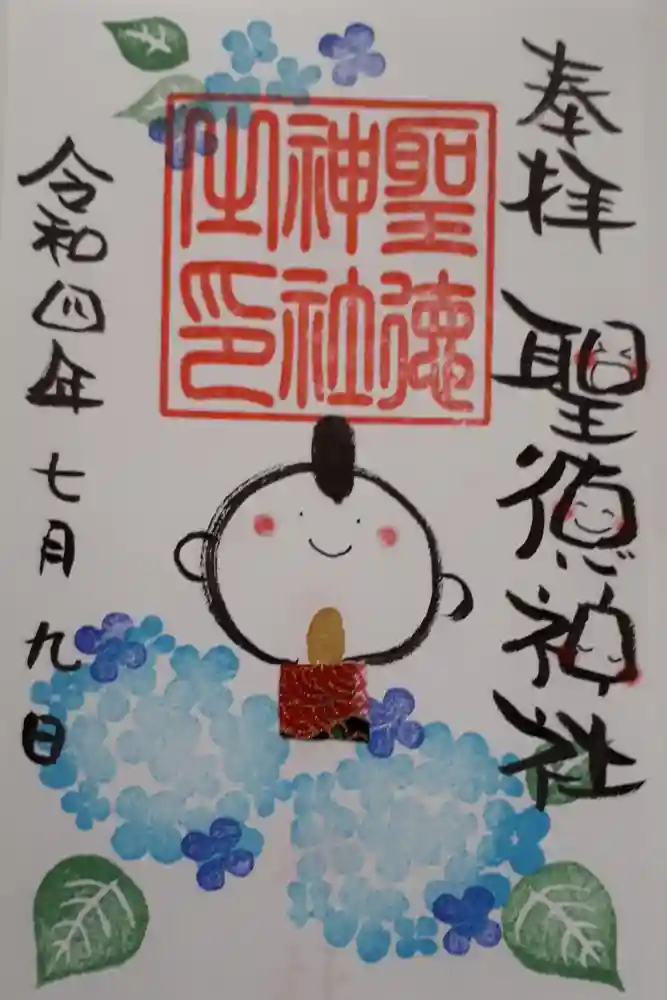 奉拝
聖徳神社
聖徳
神社
之印
令和四年七月九日